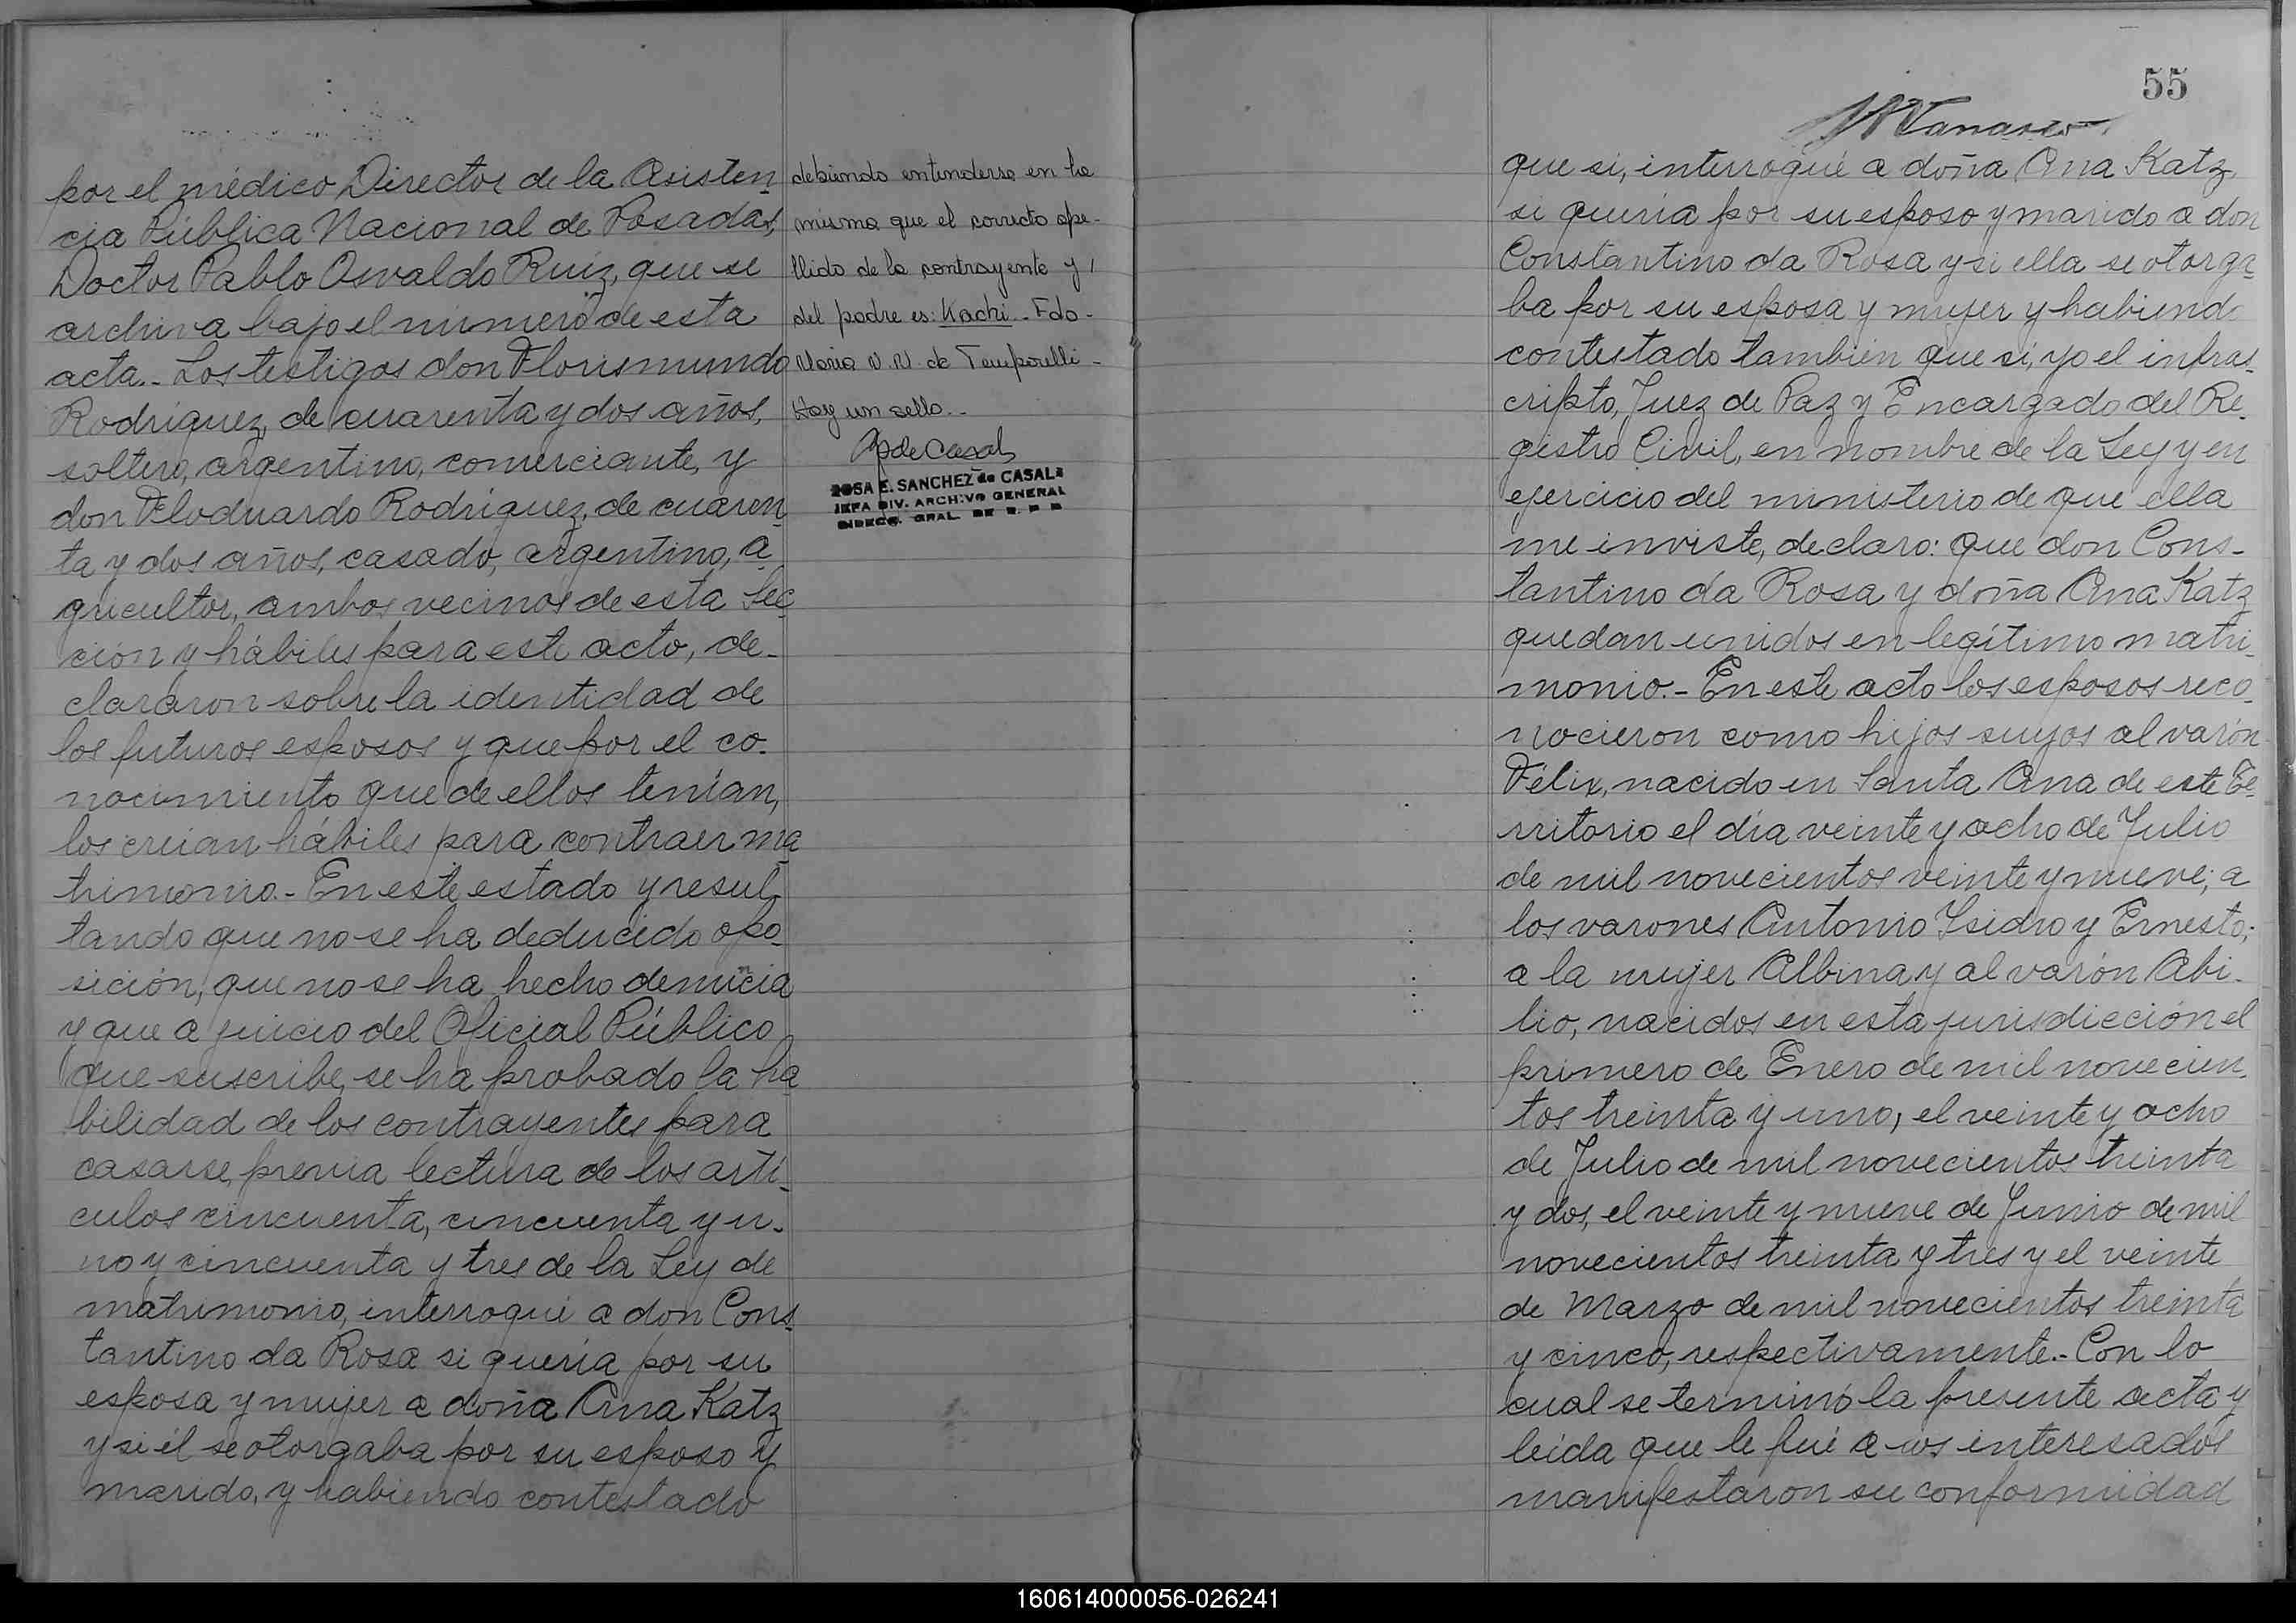 por el médico Director de la Asisten
cia Pública Nacional de Posadas,
Doctor Pablo Osvaldo Ruiz, que se
archiva bajo el número de esta
acta.- Los testigos don Florismundo
Rodríguez, de cuarenta y dos años,
soltero, argentino, comerciante, y
don Floduardo Rodríguez, de cuaren-
ta y dos años, casado, argentino, a-
gricultor, ambos vecinos de esta Sec
ción y hábiles para este acto, de-
clararon sobre la identidad de
los futuros esposos y que por el co-
nocimiento que de ellos tenían,
los creían hábiles para contraer ma
trimonio.- En este estado y resul-
tando que no se ha deducido opo-
sición, que no se ha hecho denuncia
y que a juicio del Oficial Público
que suscribe, se ha probado la ha
bilidad de los contrayentes para
casarse, previa lectura de los artí-
culos cincuenta, cincuenta y u-
no y cincuenta y tres de la Ley de
matrimonio, interrogué a don Cons-
tantino da Rosa si quería por su
esposa y mujer a doña Ana Katz
y si él se otorgaba por su esposo y
marido, y habiendo contestado
debiendo entenderse en la
misma que el correcto ape-
llido de la contrayente y
del padre es: Kachi.- Fdo-
Maria V. N. de Temporelli-
Hay un sello.-
ROSA E. SANCHEZ de CASALS
JEFA DIV. ARCHIVO GENERAL
DIRECC. GRAL. DE R. P. P.
55
que si, interrogué a doña Ana Katz
si quería por su esposo y marido a don
Constantino da Rosa y si ella se otorga-
ba por su esposa y mujer y habiendo
contestado también que sí, yo el infras-
cripto, Juez de Paz y Encargado del Re-
gistro Civil, en nombre de la Ley y en
ejercicio del ministerio de que ella
me inviste, declaro: que don Cons-
tantino da Rosa y doña Ana Katz
quedan unidos en legítimo matri-
monio.- En este acto los esposos reco-
nocieron como hijos suyos al varón
Félix, nacido en Santa Ana de este Te-
rritorio el día veinte y ocho de Julio
de mil novecientos veinte y nueve; a
los varones Antonio Isidro y Ernesto;
a la mujer Albina y al varón Abi-
lio, nacidos en esta jurisdicción el
primero de Enero de mil novecien-
tos treinta y uno, el veinte y ocho
de Julio de mil novecientos treinta
y dos, el veinte y nueve de Junio de mil
novecientos treinta y tres y el veinte
de Marzo de mil novecientos treinta
y cinco, respectivamente.- Con lo
cual se terminó la presente acta y
leída que le fué a los interesados
manifestaron su conformidad
160614000056-026241